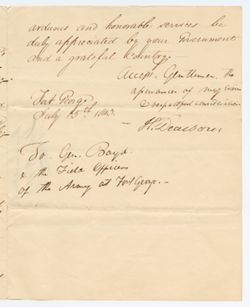 arduous and honorable services be
duly appreciated by your Government
and a grateful Country.
Accept, Gentlemen, the
assurances of my esteem
& respectful consideration
Fort George
July 15th 1813.
H. Dearborn
To Gen. Boyd
& the Field Officers
of the Army at Fort George.